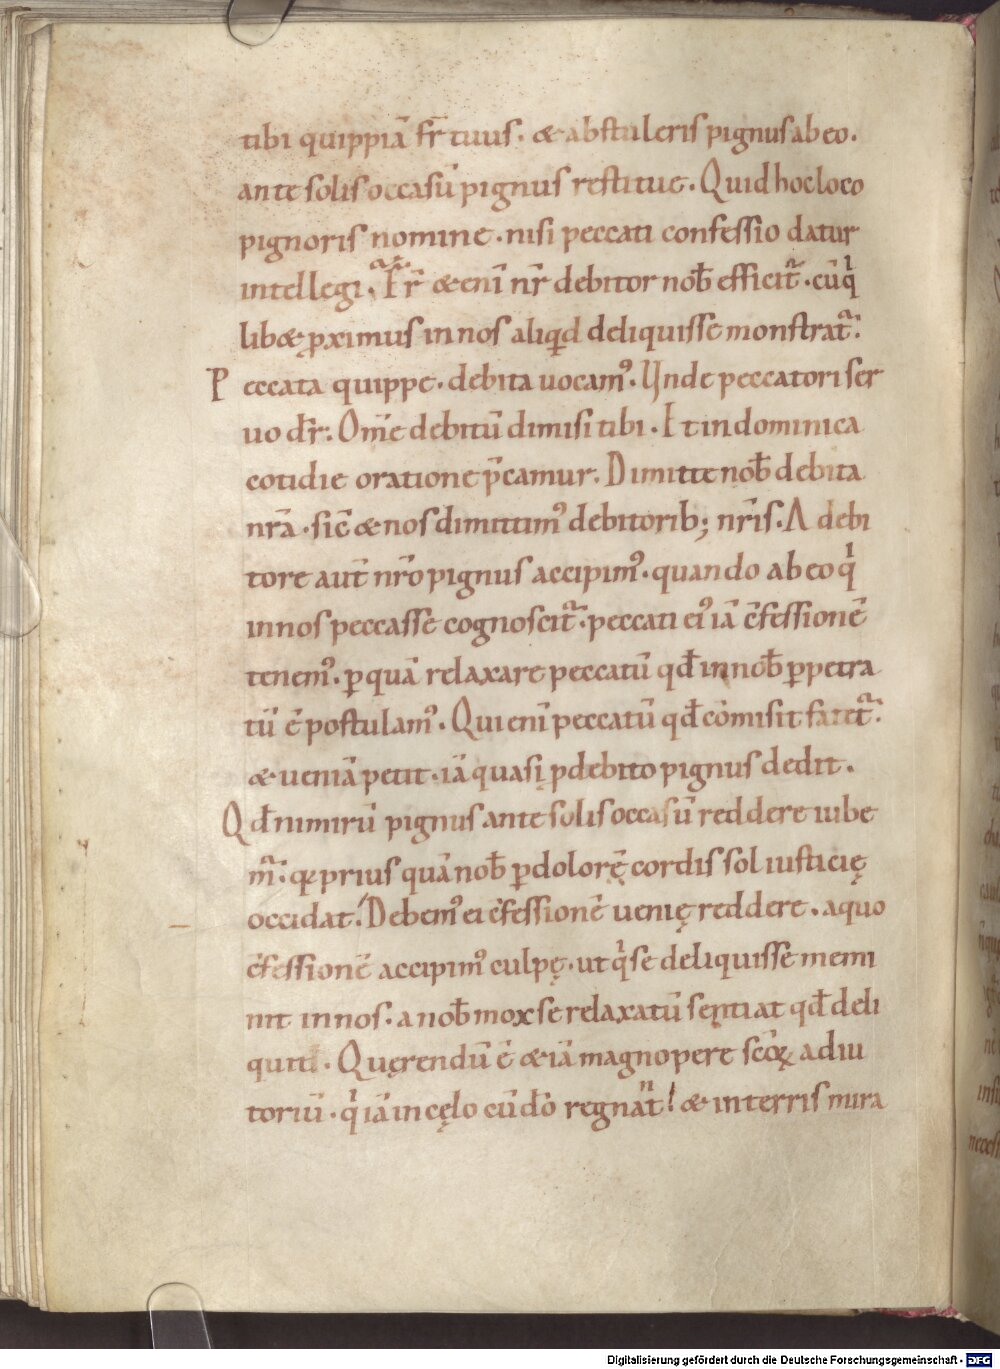 tibi quippiā fr̄ tuus. & abstuleris pignus ab eo.
ante solis occasū pignus restitue. Quid hoc loco
pignoris nomine. nisi peccati confessio datur
intellegi. Fr̄ &enī nr̄ debitor nob̄ efficit̄. cūq
lib& ꝓximus in nos aliqd deliquisse monstrat̄.
Peccata quippe. debita uocam᾿. Unde peccatori ser
uo dr̄. Om̄e debitū dimisi tibi. Et in dominica
cotidie oratione p̄camur. Dimitte nob̄ debita
nr̄a. sic̄ & nos dimittim᾿ debitorib; nr̄is. A debi
tore aut̄ nr̄o pignus accipim᾿. quando ab eo q
in nos peccasse cognoscit̄. peccati ei᾿ iā c̄fessionē
tenem᾿. ꝑ quā relaxare peccatū qd̄ in nob̄ ꝑpetra
tū ē postulam᾿. Qui enī peccatū qd̄ cōmisit fatet̄.
& ueniā petit. iā quasi ꝓ debito pignus dedit.
Qd̄ nimirū pignus ante solis occasū reddere iube
m̄. qꝛ prius quā nob̄ ꝑ dolorē cordis sol iusticię
occidat. Debem᾿ ei c̄fessionē uenię reddere. a quo
c̄fessionē accipim᾿ culpę. ut q se deliquisse memi
nit in nos. a nob̄ mox se relaxatū sentiat qd̄ deli
quit. Quęrendū ē &iā magnopere sc̄oꝝ adiu
toriū. q iā in cęlo cū dn̄o regnant. & in terris mira